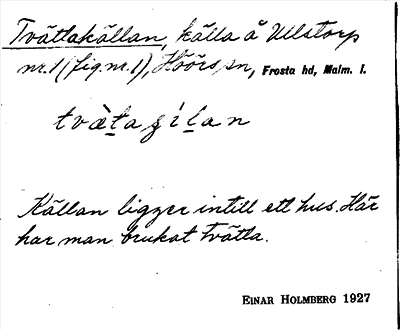 Tvättakällan, källa å Ullstorp
nr. 1 (fig. nr. 1), Höörs sn, Frosta hd, Malm. l.
tvὰt̲a ʂíl̲an
Källan ligger intill ett hus. Här
har man brukat tvätta.
EINAR HOLMBERG 1927